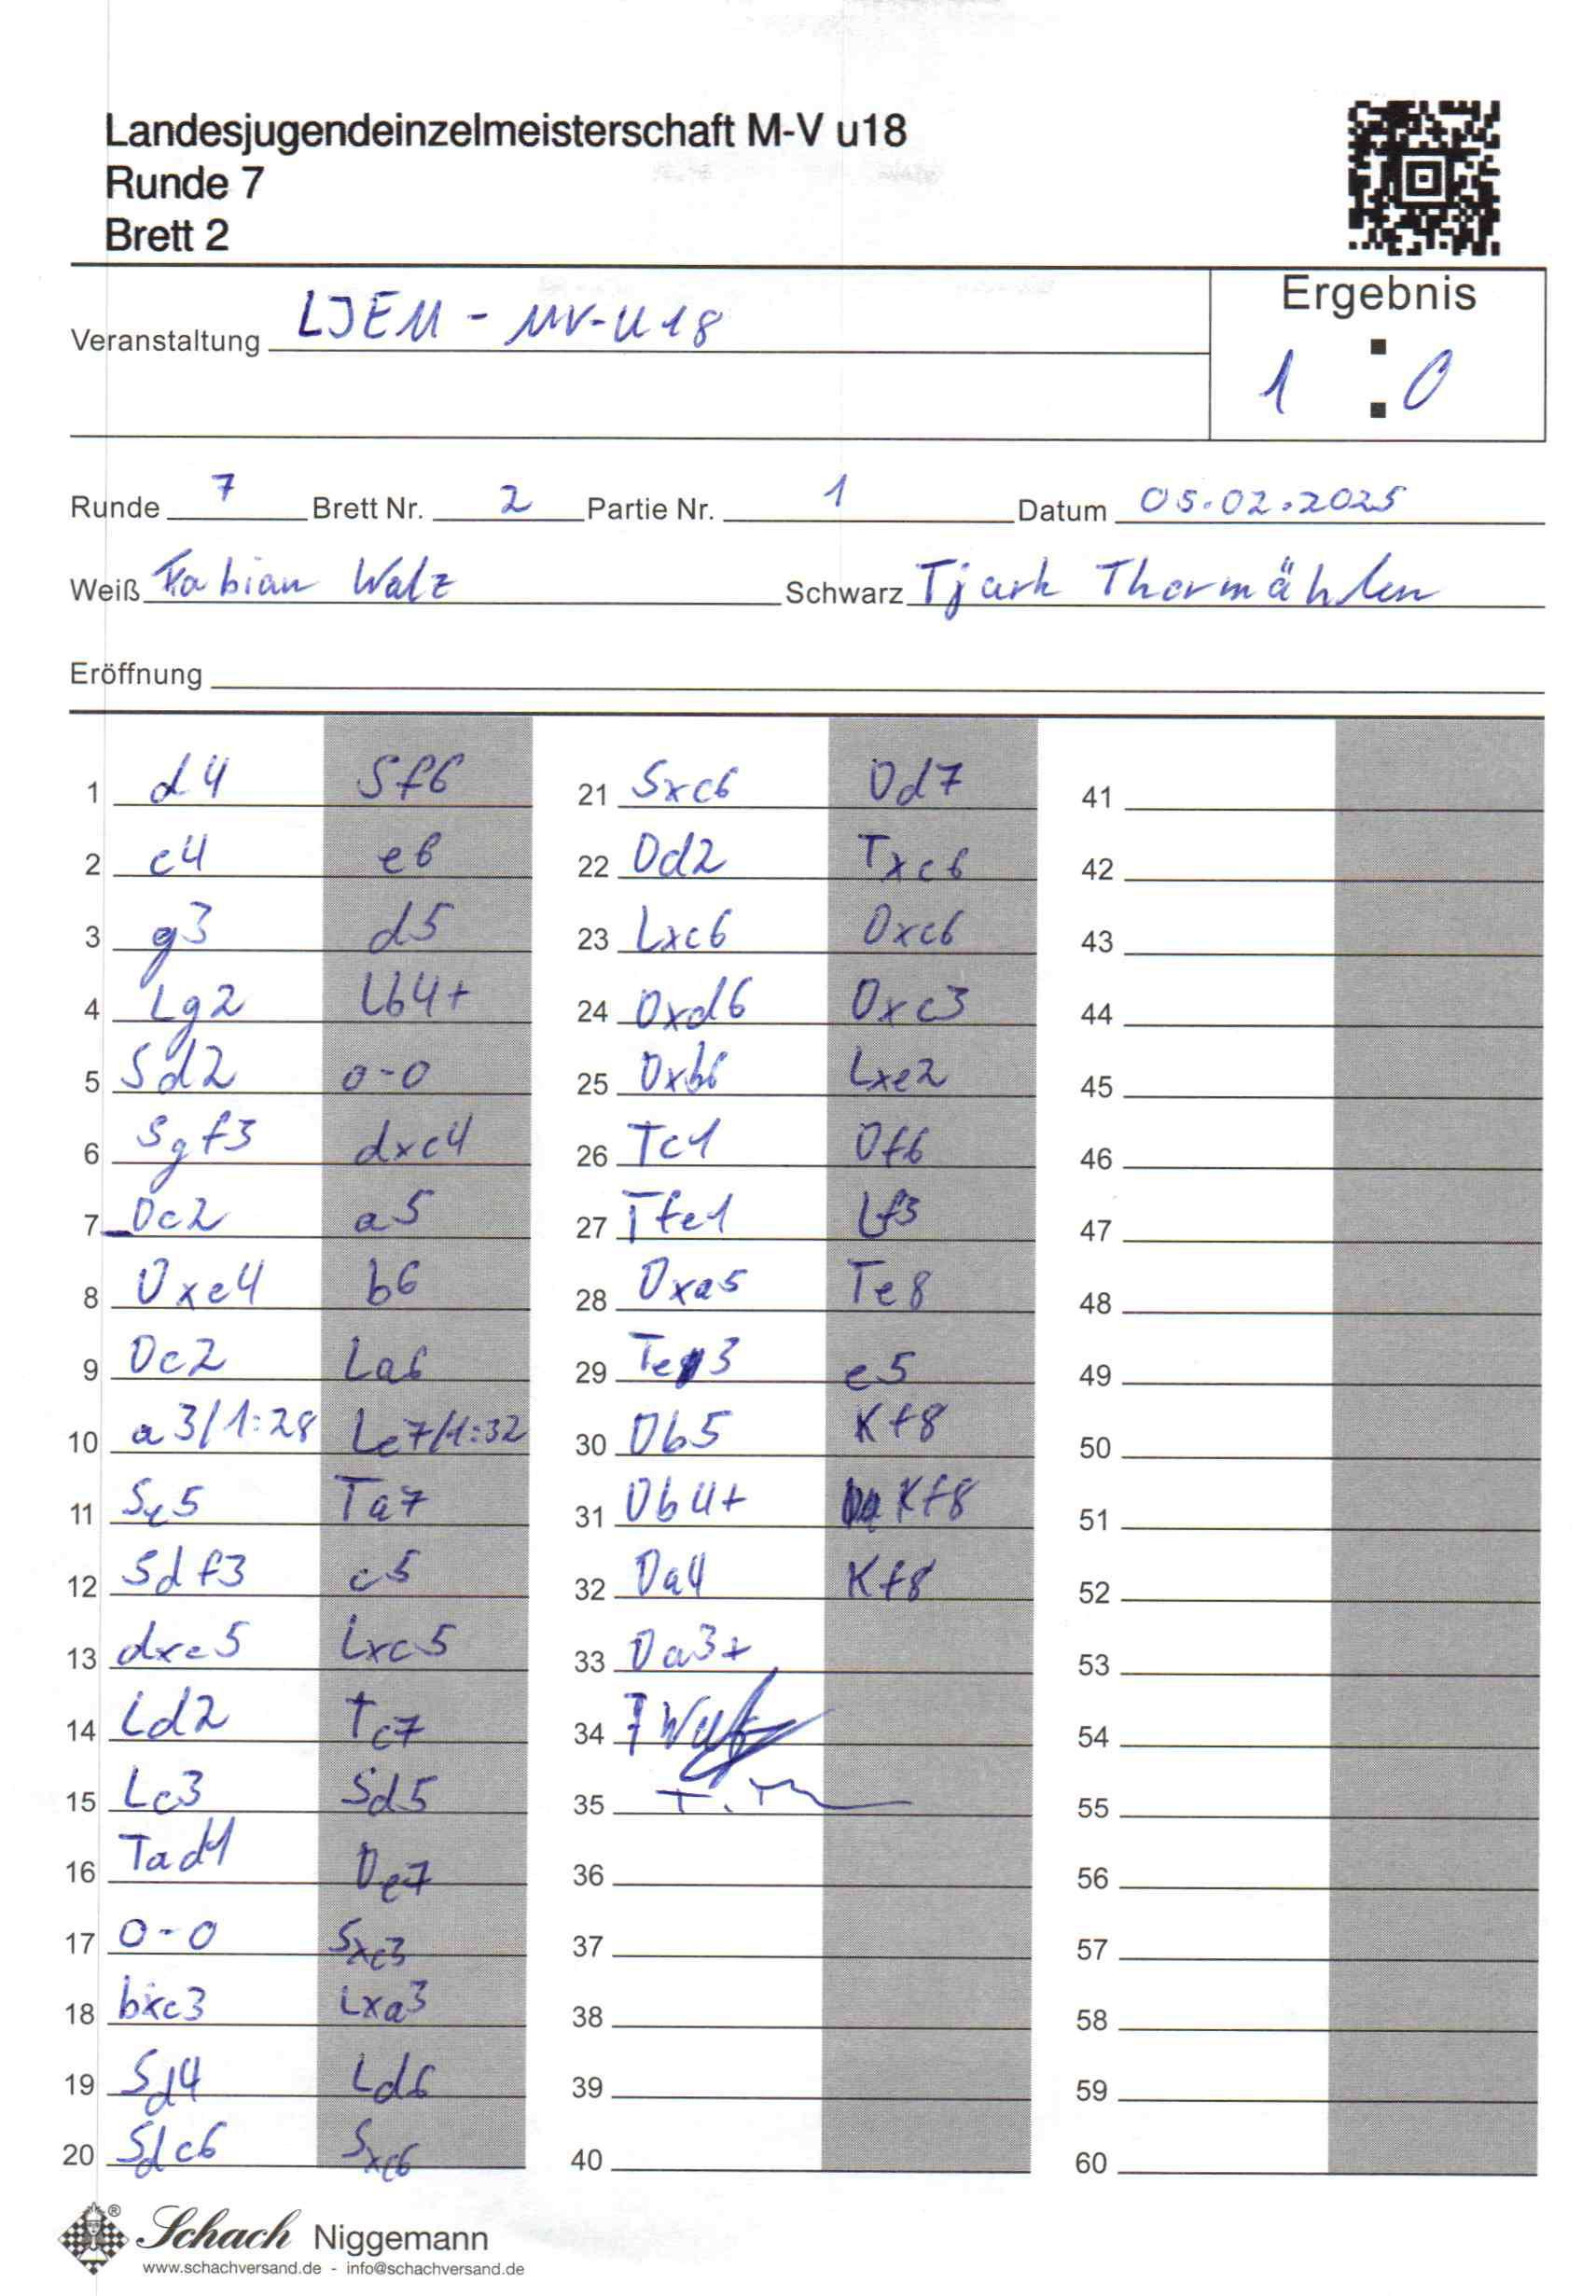 Landesjugendeinzelmeisterschaft M-V u18
Runde 7
Brett 2
Ergebnis
Veranstaltung LJEM - MV-U18
1 : 0
Runde 7 Brett Nr. 2 Partie Nr. 1 Datum 05.02.2025
Weiß Fabian Walz Schwarz Tjark Thormählen
Eröffnung
1 d4 Sf6
2 c4 e6
3 g3 d5
4 Lg2 Lb4+
5 Sd2 0-0
6 Sgf3 dxc4
7 Dc2 a5
8 Dxc4 b6
9 Dc2 La6
10 a3/1:28 Le7/1:32
11 Se5 Ta7
12 Sdf3 c5
13 dxc5 Lxc5
14 Ld2 Tc7
15 Lc3 Sd5
16 Tad1 De7
17 0-0 Sxc3
18 bxc3 Lxa3
19 Sd4 Ld6
20 Sdc6 Sxc6
21 Sxc6 Dd7
22 Dd2 Txc6
23 Lxc6 Dxc6
24 Dxd6 Dxc3
25 Dxb6 Lxe2
26 Tc1 Df6
27 Tfe1 Lf3
28 Dxa5 Te8
29 Te3 e5
30 Db5 Kf8
31 Db4+ Kf8
32 Da4 Kf8
33 Da3+
34 F Walz
35
36
37
38
39
40
41
42
43
44
45
46
47
48
49
50
51
52
53
54
55
56
57
58
59
60
Schach Niggemann
www.schachversand.de - info@schachversand.de